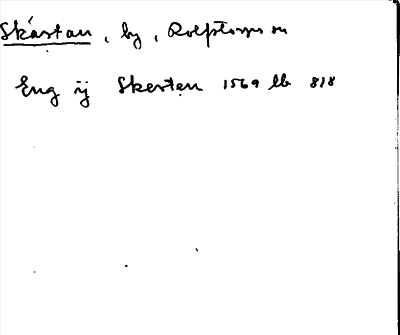 Skárstau, by, Rolfstorps sn
Eng ij Skersten 1569 lb 818